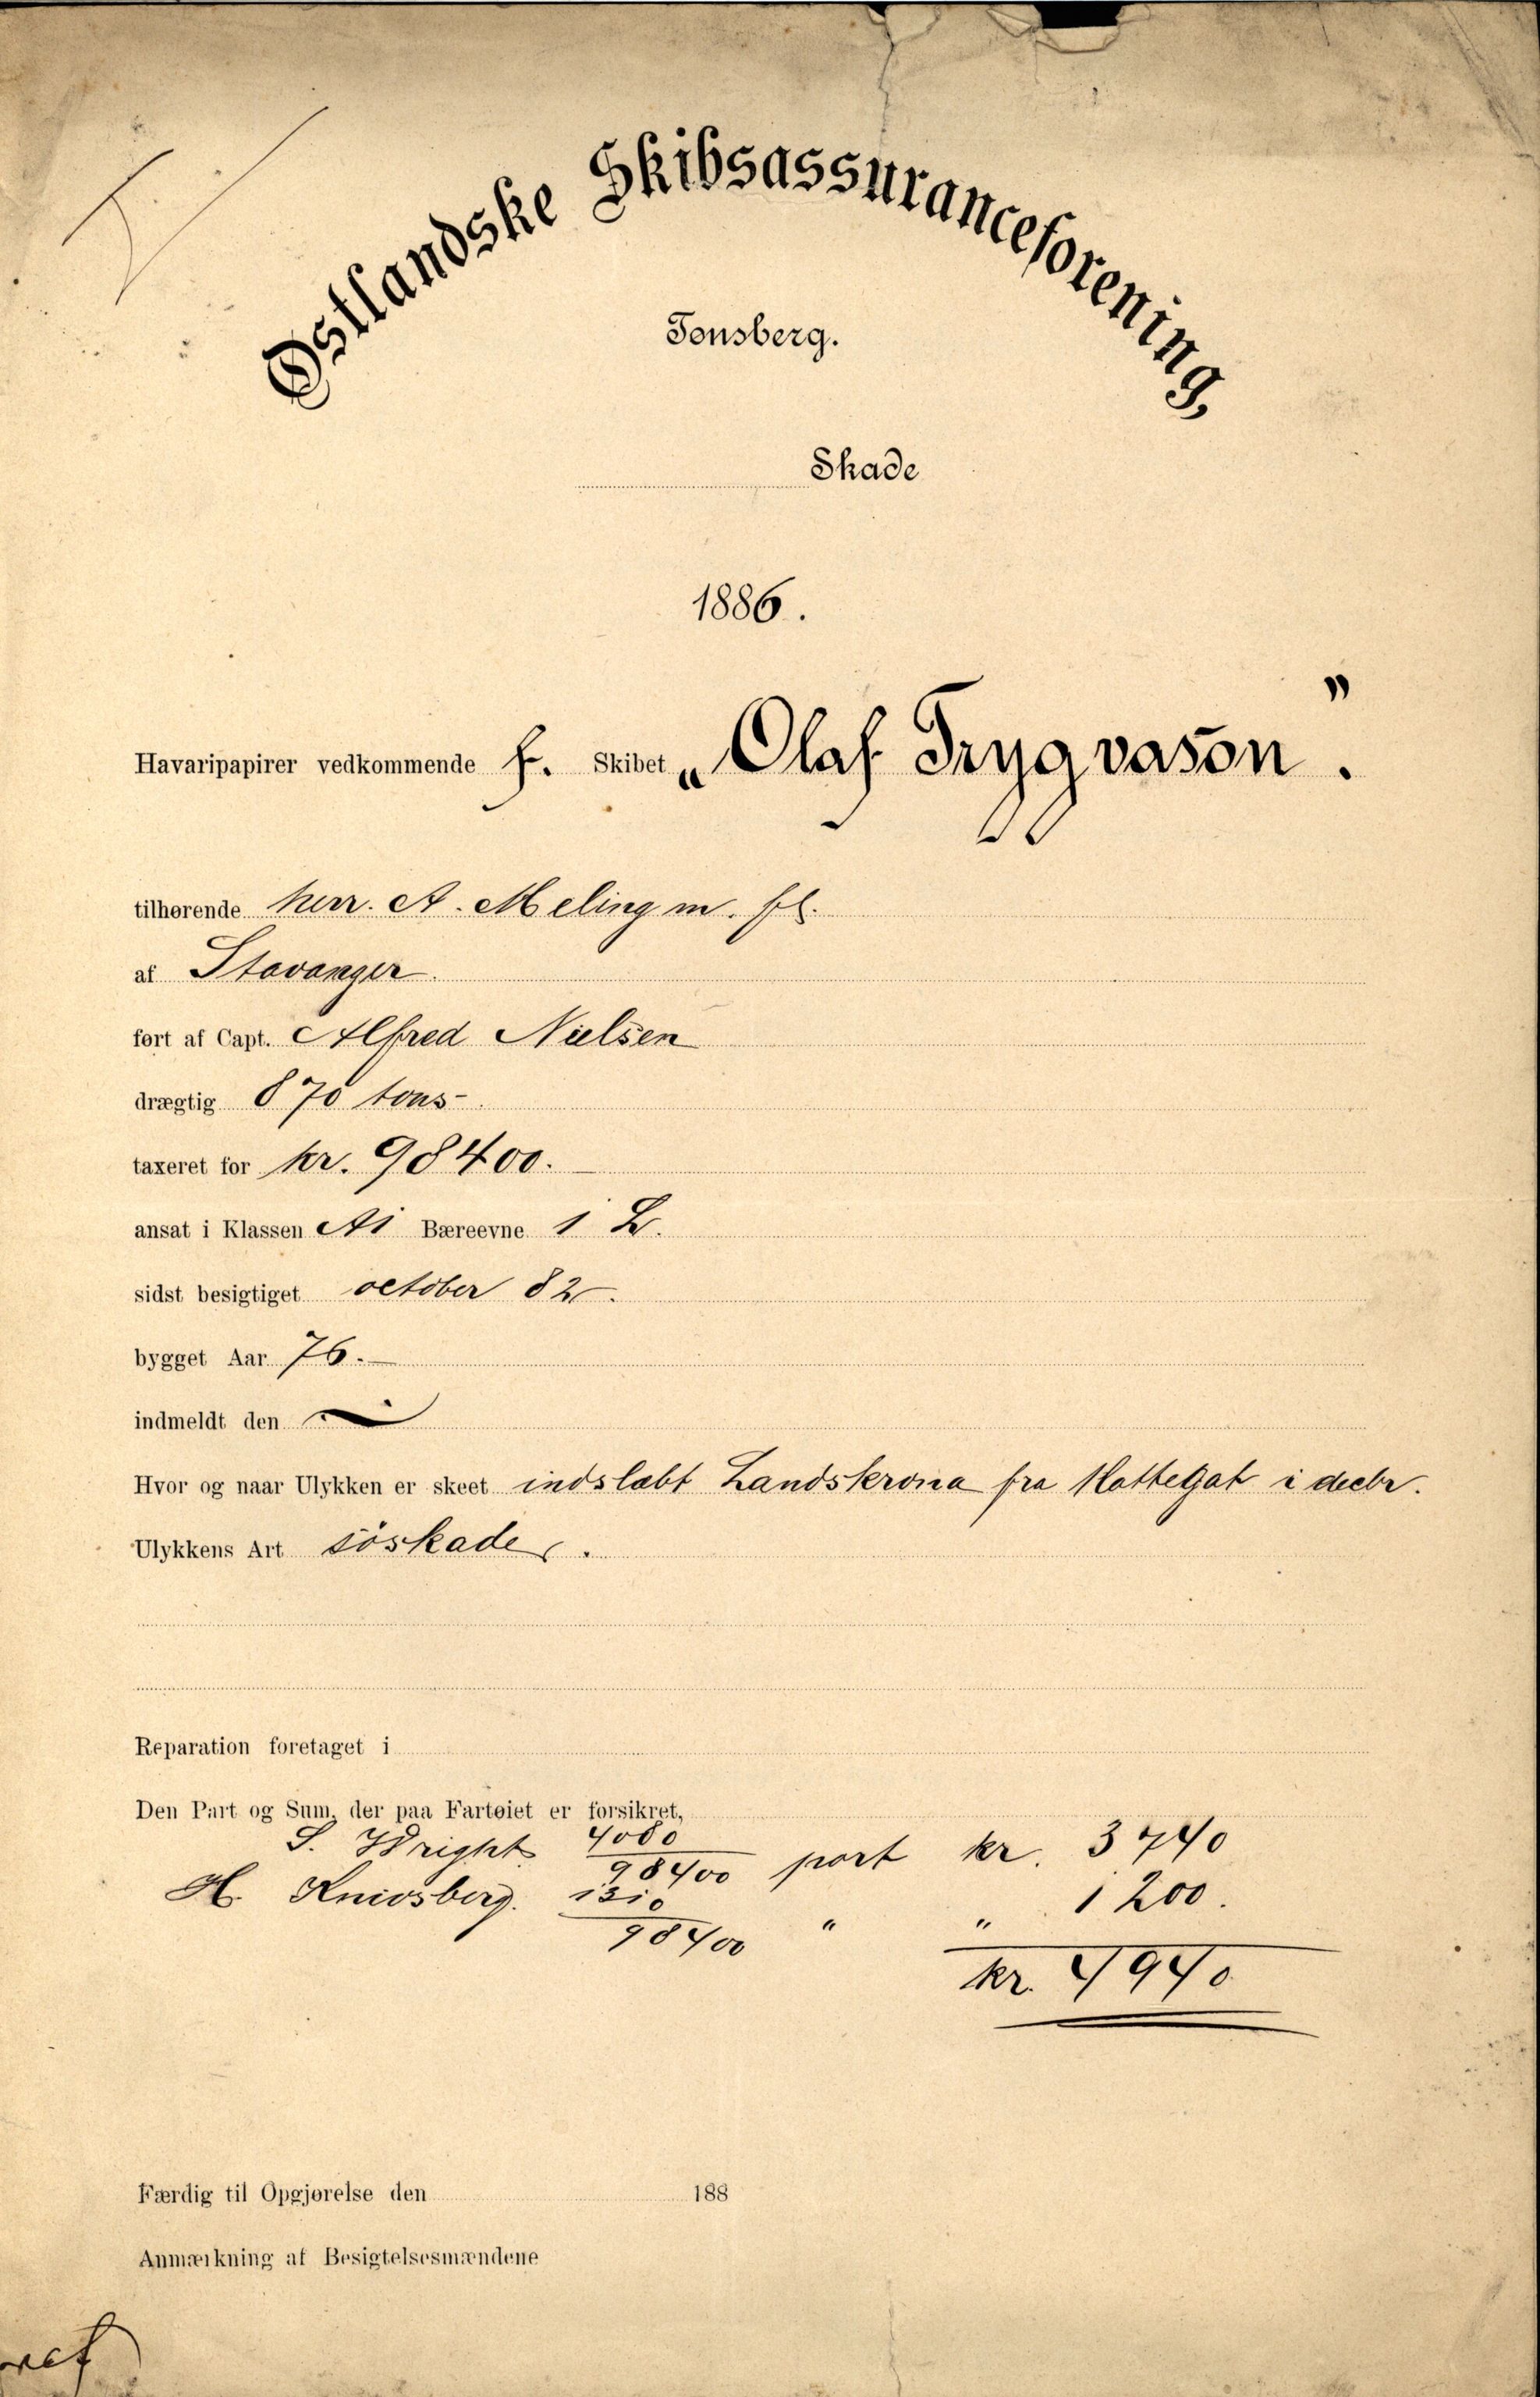 Østlandske Skibsassuranceforening,
Tønsberg.
Skade
1886.
Havaripapirer vedkommende f. Skibet „Olaf Trygvason".
tilhørende herr. A. Meling m. fl.
af Stavanger.
ført af Capt. Alfred Nielsen
drægtig 870 tons
taxeret for kr. 98400.
ansat i Klassen A1 Bæreevne 1 L.
sidst besigtiget october 82.
bygget Aar 76.
indmeldt den
Hvor og naar Ulykken er skeet indslæbt Landskrona fra Kattegat i decbr.
Ulykkens Art søskade.
Reparation foretaget i
Den Part og Sum, der paa Fartøiet er forsikret,
S. Wright 4080
98400 part kr. 3740
H. Kniosberg. 1310
98400 " " 1200.
kr. 4940
Færdig til Opgjørelse den 188
Anmærkning af Besigtelsesmændene